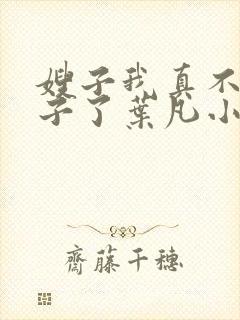 嫂子我真不
子了葉凡小
齋藤千穗